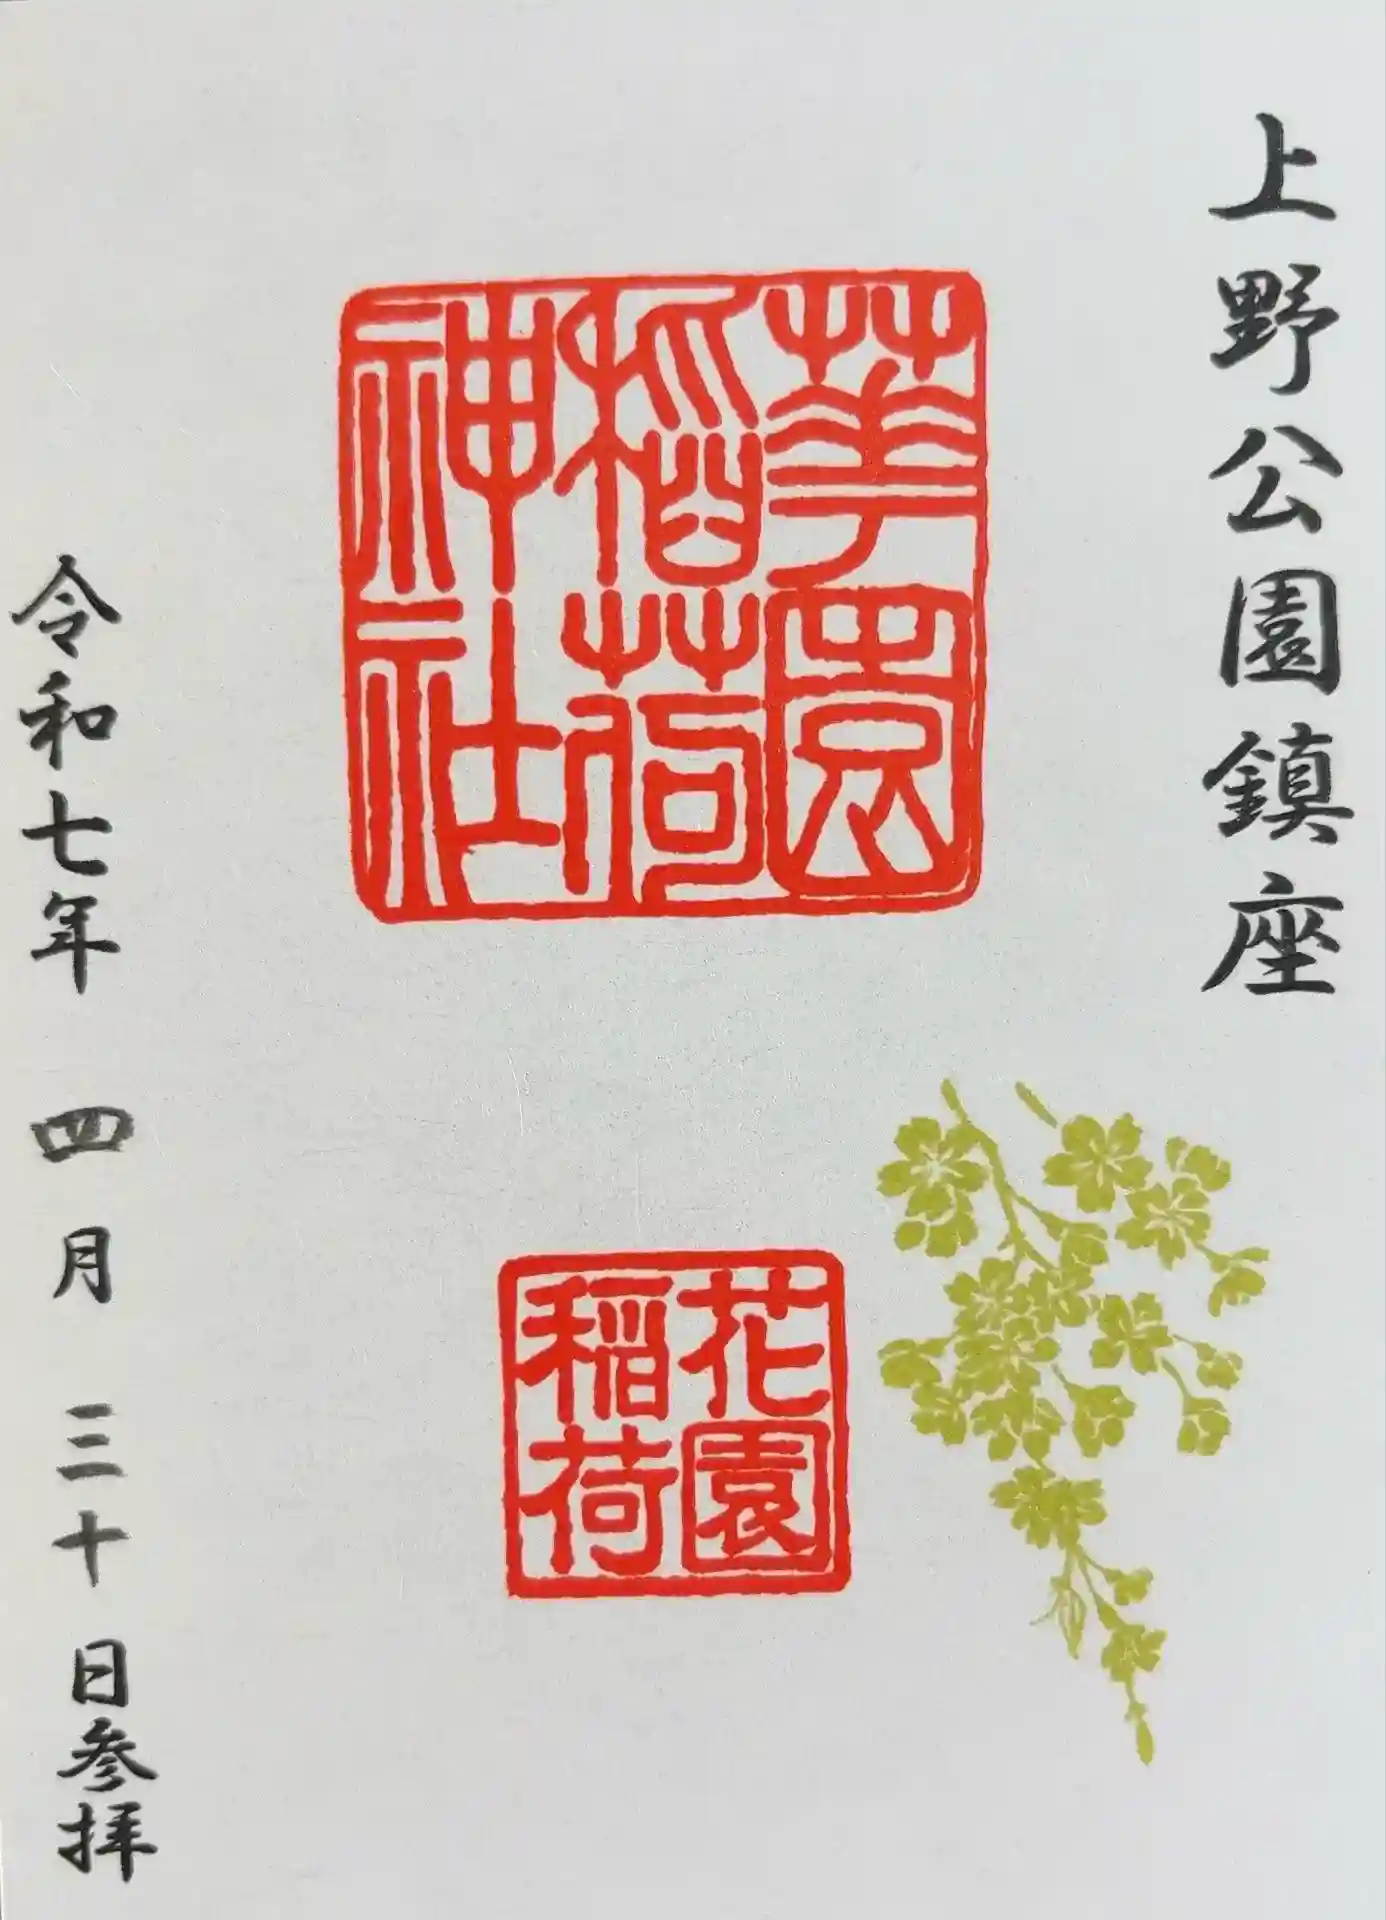 上野公園鎮座
華園稲荷神社
花園稲荷
令和七年 四月 三十日参拝